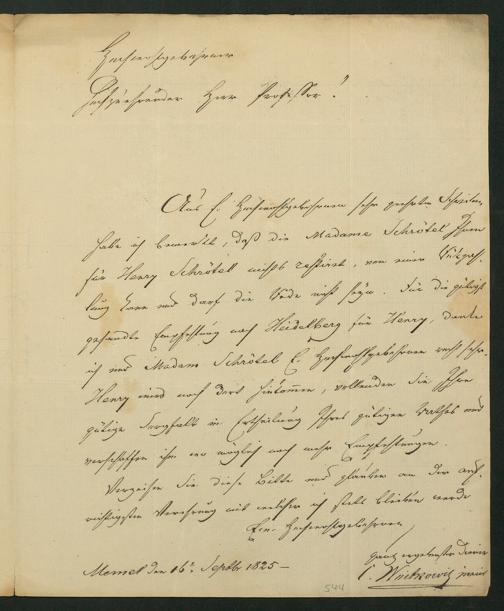 Hochwohlgebohrner
Hochzuehrender Herr Professor!
Aus E. Hochwohlgebohrnen sehr geehrten Schreiben
habe ich bemerkt, daß die Madame Schrötel Ihnen
für Henry Schrötel nichts restirt, von einer Rückzah-
lung kann und darf die Rede nicht seyn. Für die gütigst
gesandte Empfehlung nach Heidelberg für Henry, danke
ich und Madame Schrötel E. Hochwohlgebohrnen recht sehr.
Henry wird noch dort hinkommen, vollenden Sie Ihre
gütige Sorgfalt in Ertheilung Ihres gütigen Rathes und
verschaffen ihm wo möglich noch mehr Empfehlungen.
Verzeihen Sie diese Bitte und glauben an der auf-
richtigsten Verehrung mit welcher ich stets bleiben werde
Ew. Hochwohlgebohrnen
ganz ergebenster Diener
Memel den 16t Septbr 1825 –
544